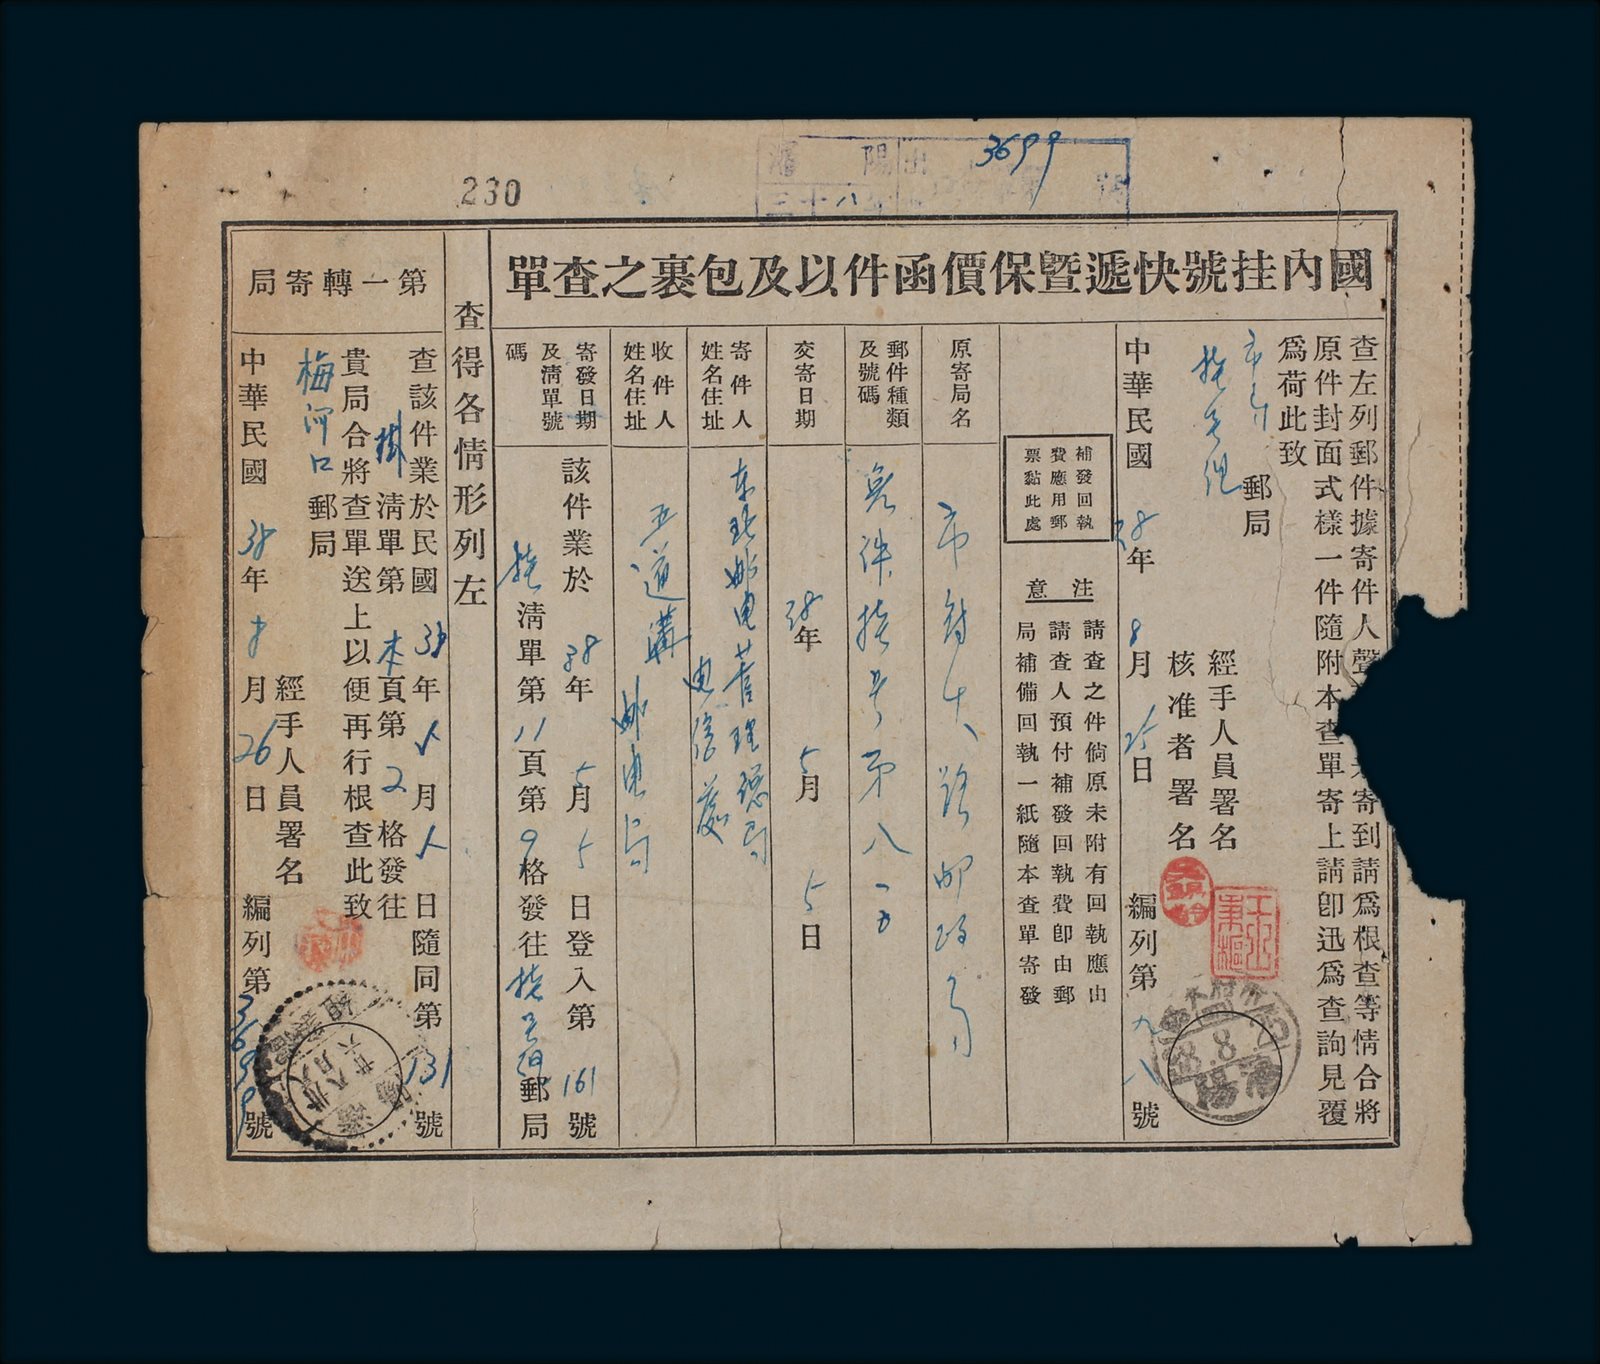 3699
瀋陽
三十八年
230
國內挂號快遞暨保價函件以及包裹之查單
查左列郵件據寄件人聲
寄到請爲根查等情合將
原件封面式樣一件隨附本查單寄上請卽迅爲查詢見覆
爲荷此致
市局 郵局
挂号組
經手人員署名
核准者署名
中華民國38年8月25日 編列第九八號
補發回執
費應用郵
票黏此處
注意
請查之件倘原未附有回執應由
請查人預付補發回執費卽由郵
局補備回執一紙隨本查單寄發
原寄局名
市府大路邮政局
郵件種類
及號碼
挂号第八一五
交寄日期
38年5月5日
寄件人
姓名住址
东北邮电管理总局
电信處
收件人
姓名住址
五道溝 邮电局
寄發日期
及淸單號
碼
該件業於38年5月5日登入第161號
挂淸單第11頁第9格發往挂号組郵局
查得各情形列左
第一轉寄局
查該件業於民國38年5月5日隨同第131號
掛淸單第本頁第2格發往
貴局合將查單送上以便再行根查此致
梅河口郵局
經手人員署名
中華民國38年8月26日 編列第3699號